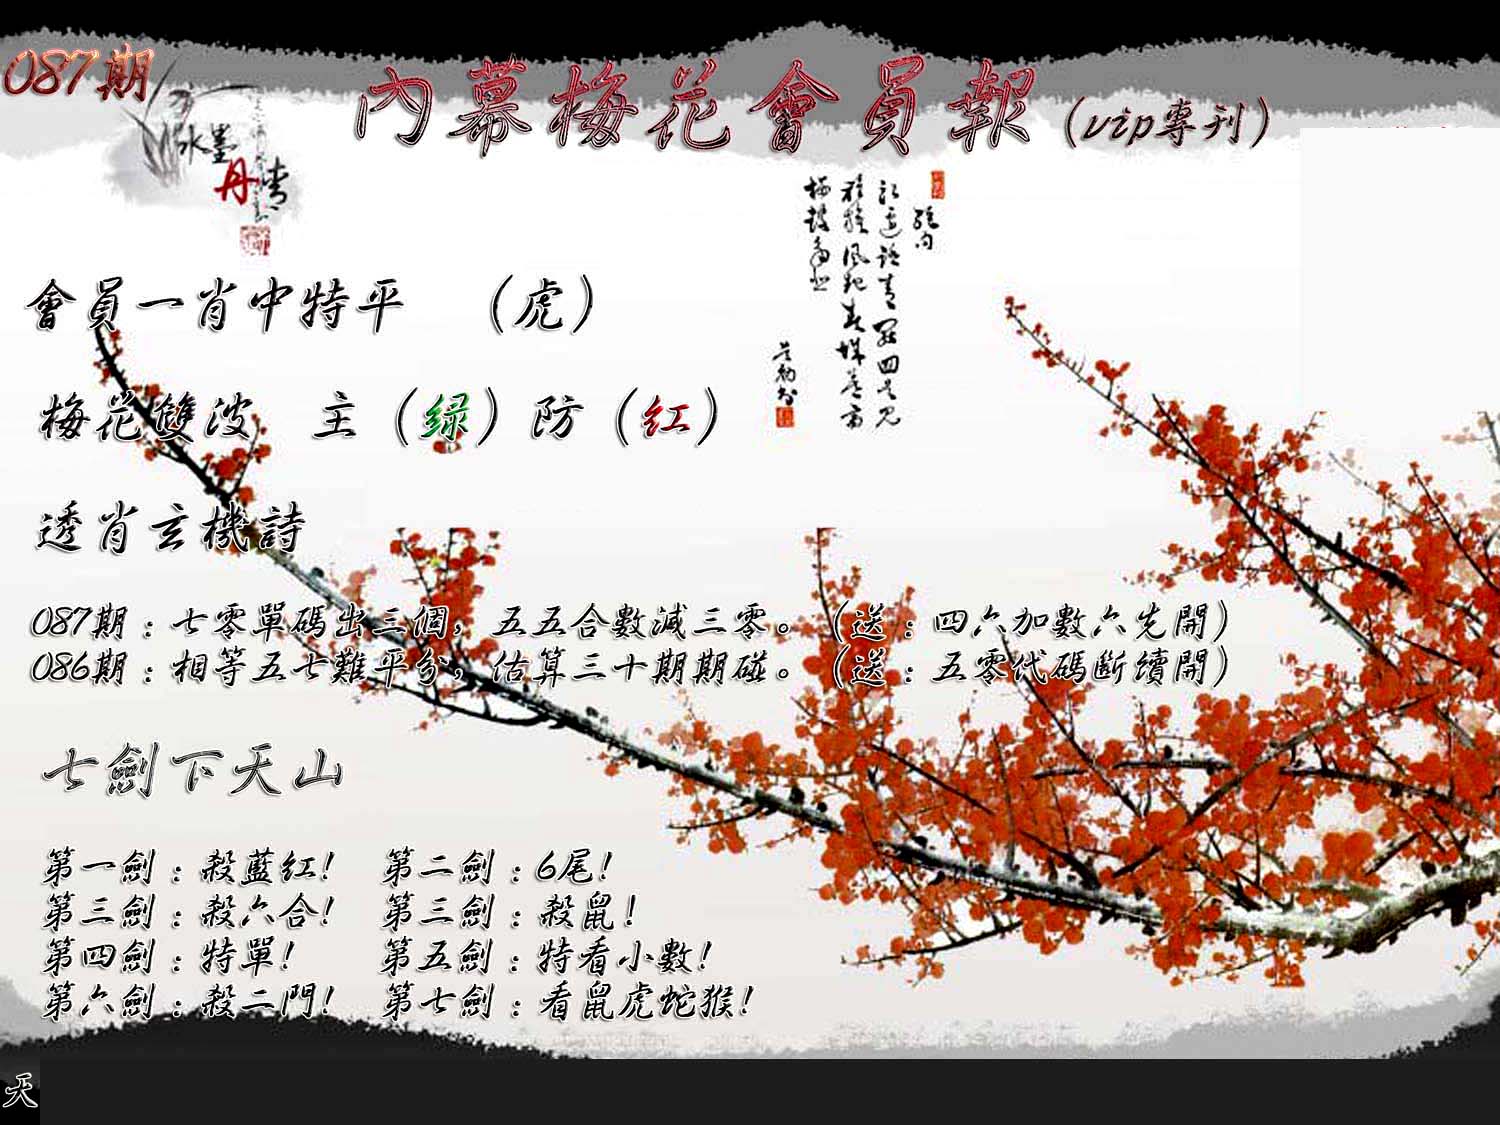 087期
內幕梅花會員報(vip專刊)
水墨
丹青
會員一肖中特平 (虎)
梅花雙波 主(绿)防(红)
透肖玄機詩
087期:七零單碼出三個,五五合數減三零。(送:四六加數六先開)
086期:相等五七難平分,估算三十期期碰。(送:五零代碼斷續開)
七劍下天山
第一劍:殺藍红! 第二劍:6尾!
第三劍:殺六合! 第三劍:殺鼠!
第四劍:特單! 第五劍:特看小數!
第六劍:殺二門! 第七劍:看鼠虎蛇猴!
天